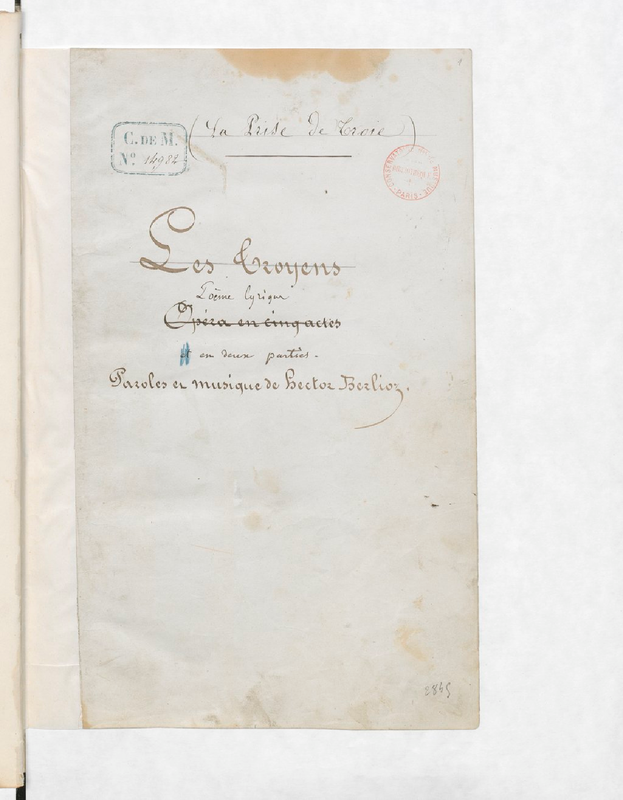 (La Prise de Troie)
C. DE M.
N.º 14984
CONSERVATOIRE DE MUSIQUE
PARIS
Les Troyens
Poëme lyrique
Opéra en cinq actes
et en deux parties.
Paroles et musique de Hector Berlioz.
2845